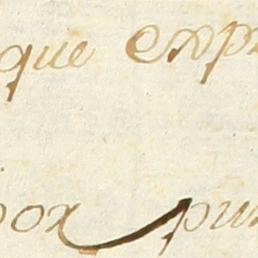 que exp
por pu